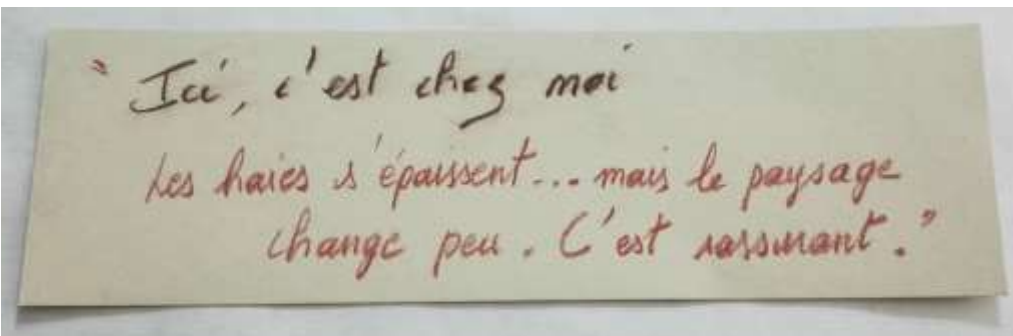 " Ici, c'est chez moi
Les haies s'épaissent... mais le paysage
change peu. C'est rassurant."